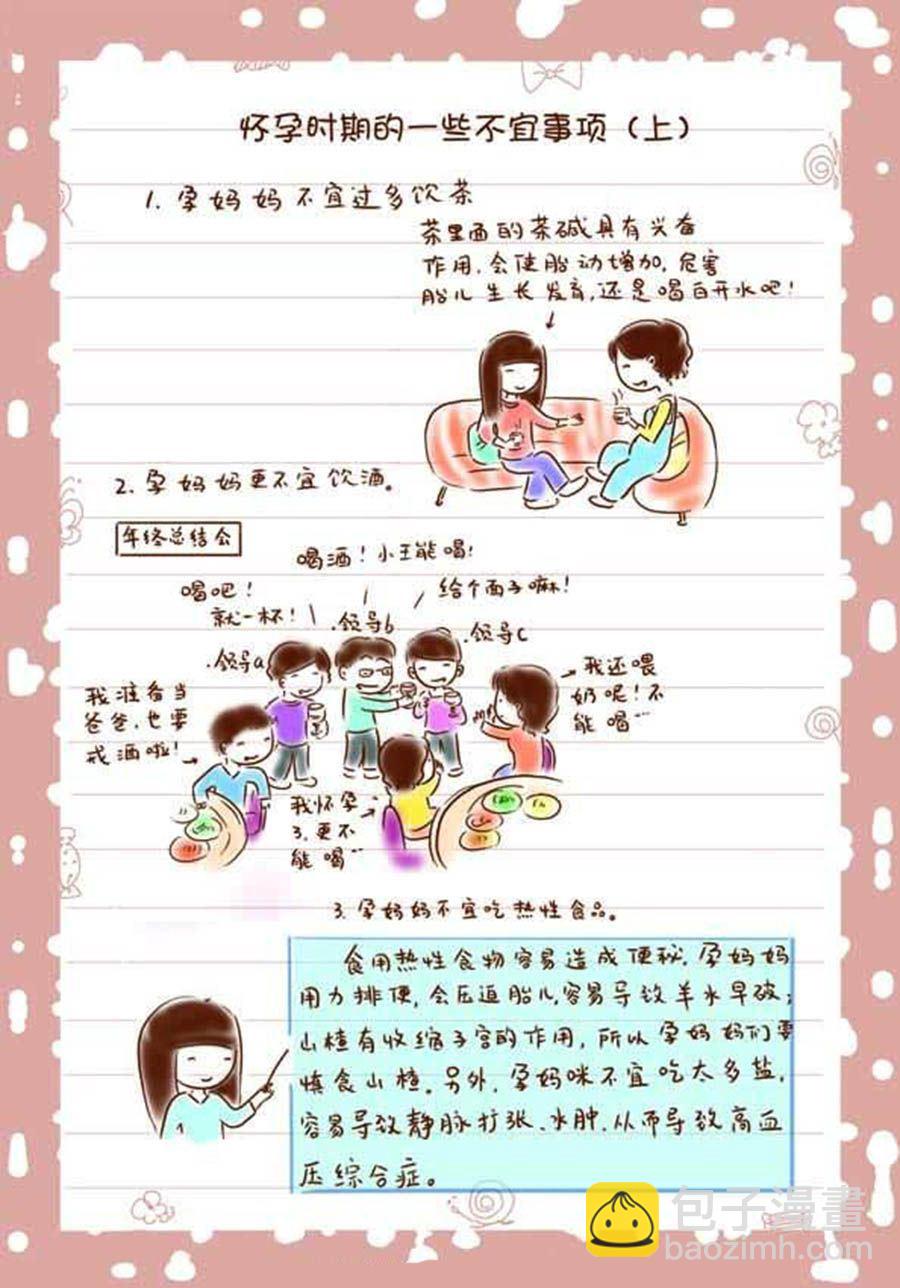 怀孕时期的一些不宜事项（上）
1. 孕妈妈不宜过多饮茶
茶里面的茶碱具有兴奋
作用，会使胎动增加，危害
胎儿生长发育，还是喝白开水吧！
2. 孕妈妈更不宜饮酒。
年终总结会
喝酒！小王能喝！
喝吧！
就一杯！
给个面子嘛！
.领导a
.领导b
.领导c
我准备当
爸爸，也要
戒酒啦！
我还喂
奶呢！不
能喝…
我怀孕
了，更不
能喝…
3. 孕妈妈不宜吃热性食品。
食用热性食物容易造成便秘，孕妈妈
用力排便，会压迫胎儿，容易导致羊水早破；
山楂有收缩子宫的作用，所以孕妈妈们要
慎食山楂。另外，孕妈咪不宜吃太多盐，
容易导致静脉扩张、水肿，从而导致高血
压综合症。
包子漫畫
baozimh.com